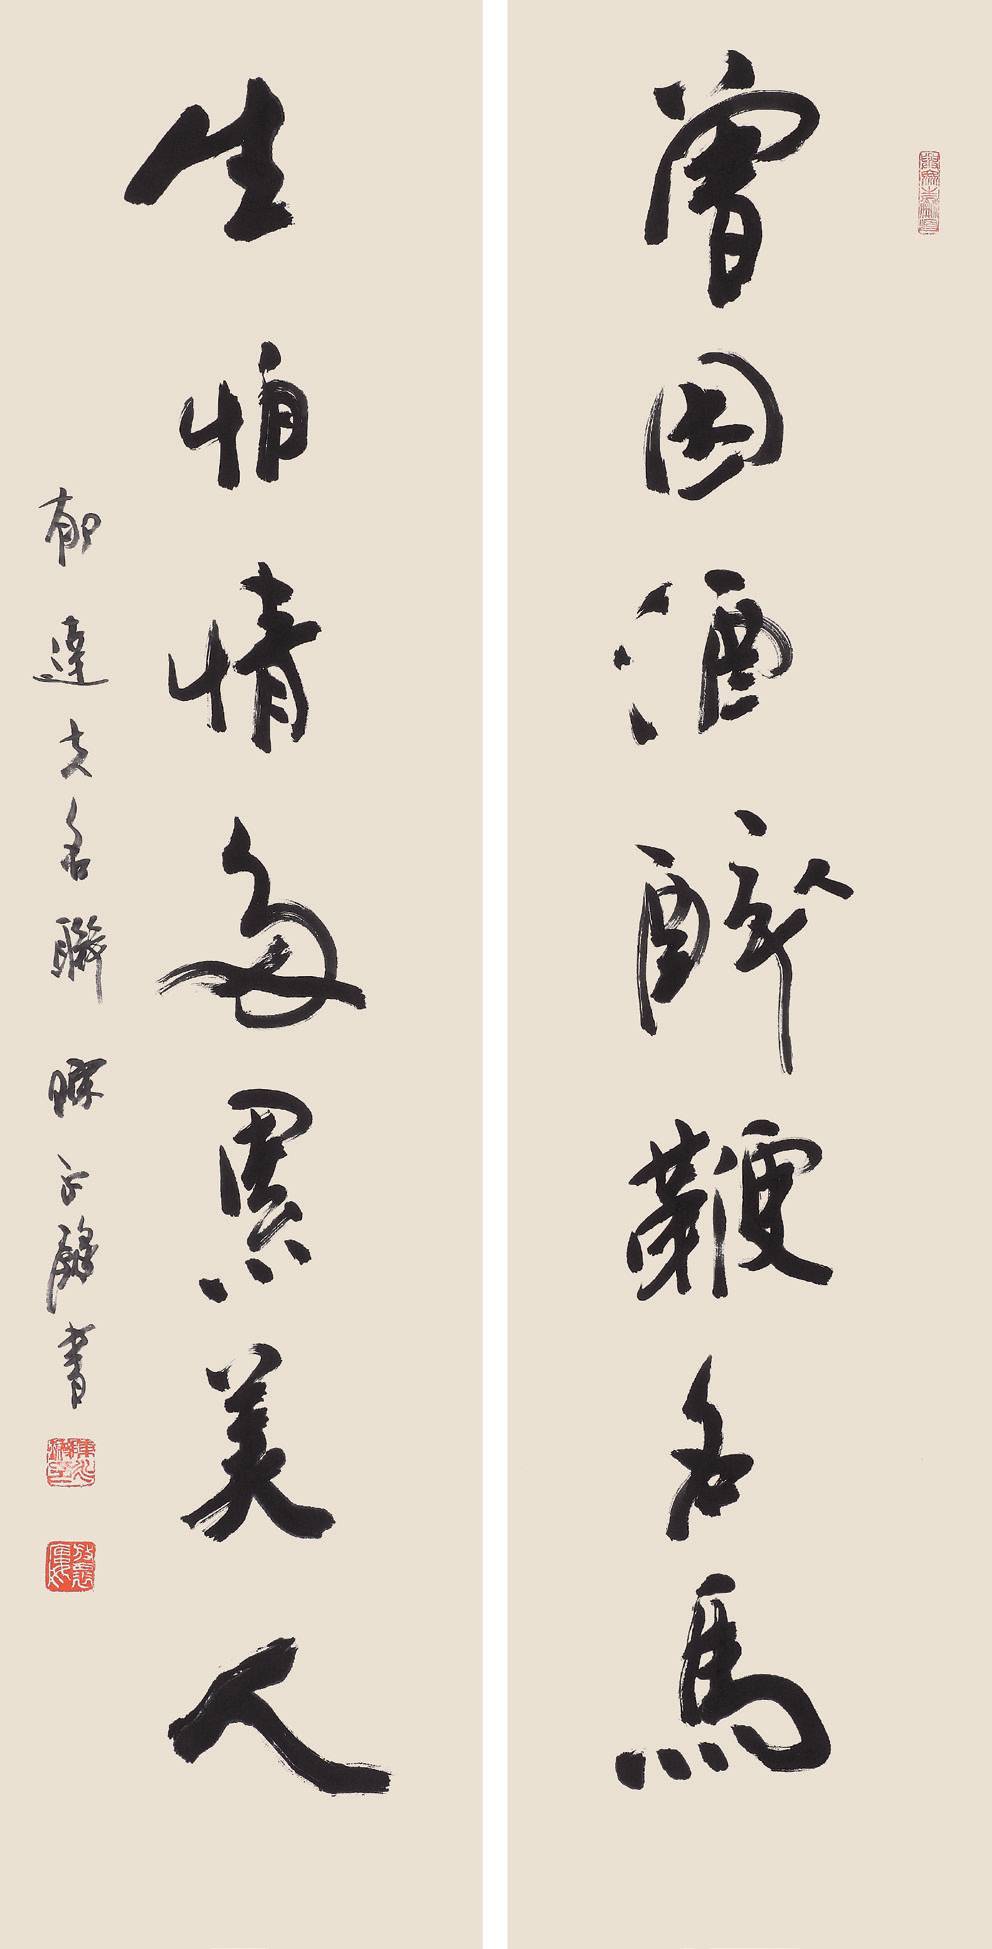 曾因酒醉鞭名馬
生怕情多累美人
郁達夫名聯 陳永鏘書